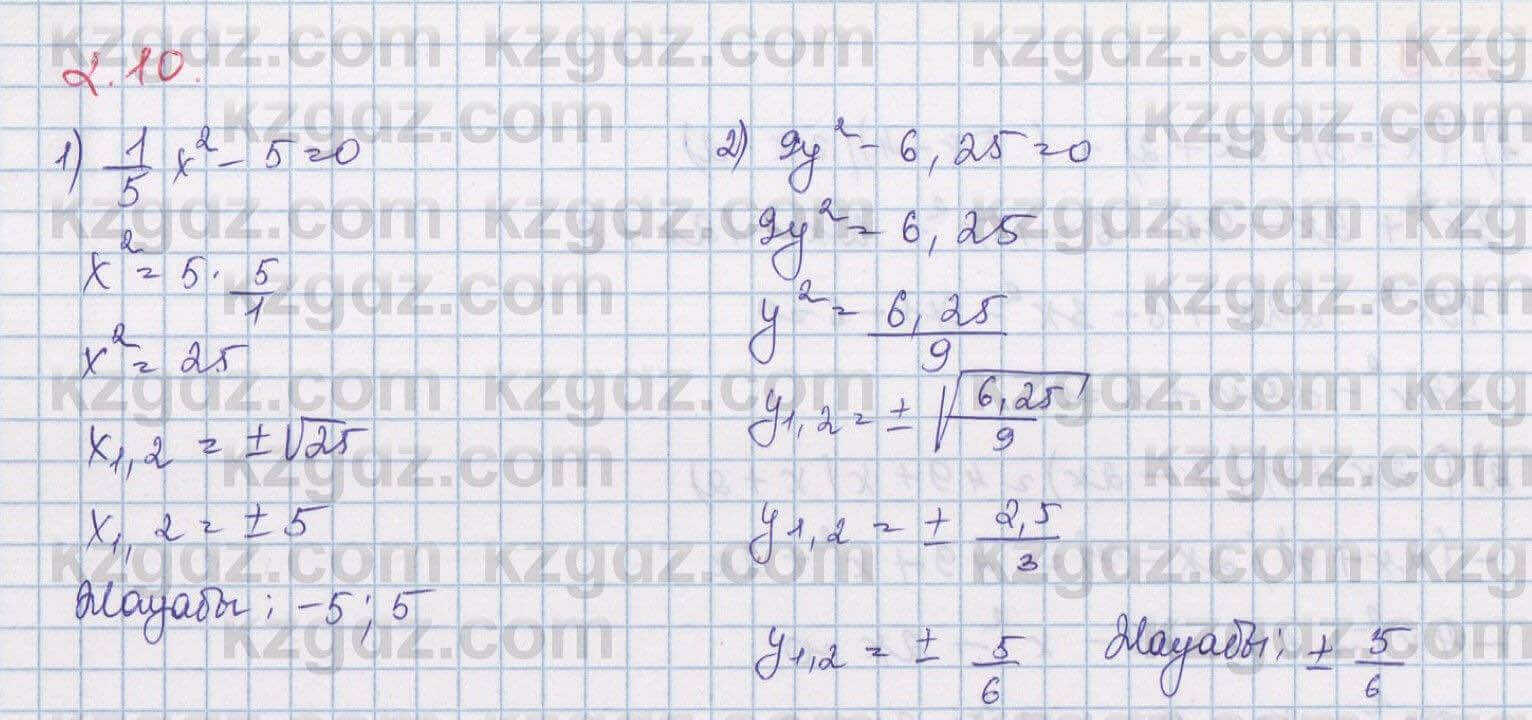 2.10.
1) 1/5 x² - 5 = 0
x² = 5 · 5/1
x² = 25
x₁,₂ = ±√25
x₁,₂ = ±5
Жауабы: -5; 5
2) 9y² - 6,25 = 0
9y² = 6,25
y² = 6,25/9
y₁,₂ = ±√(6,25/9)
y₁,₂ = ± 2,5/3
y₁,₂ = ± 5/6
Жауабы: ± 5/6
kzgdz.com